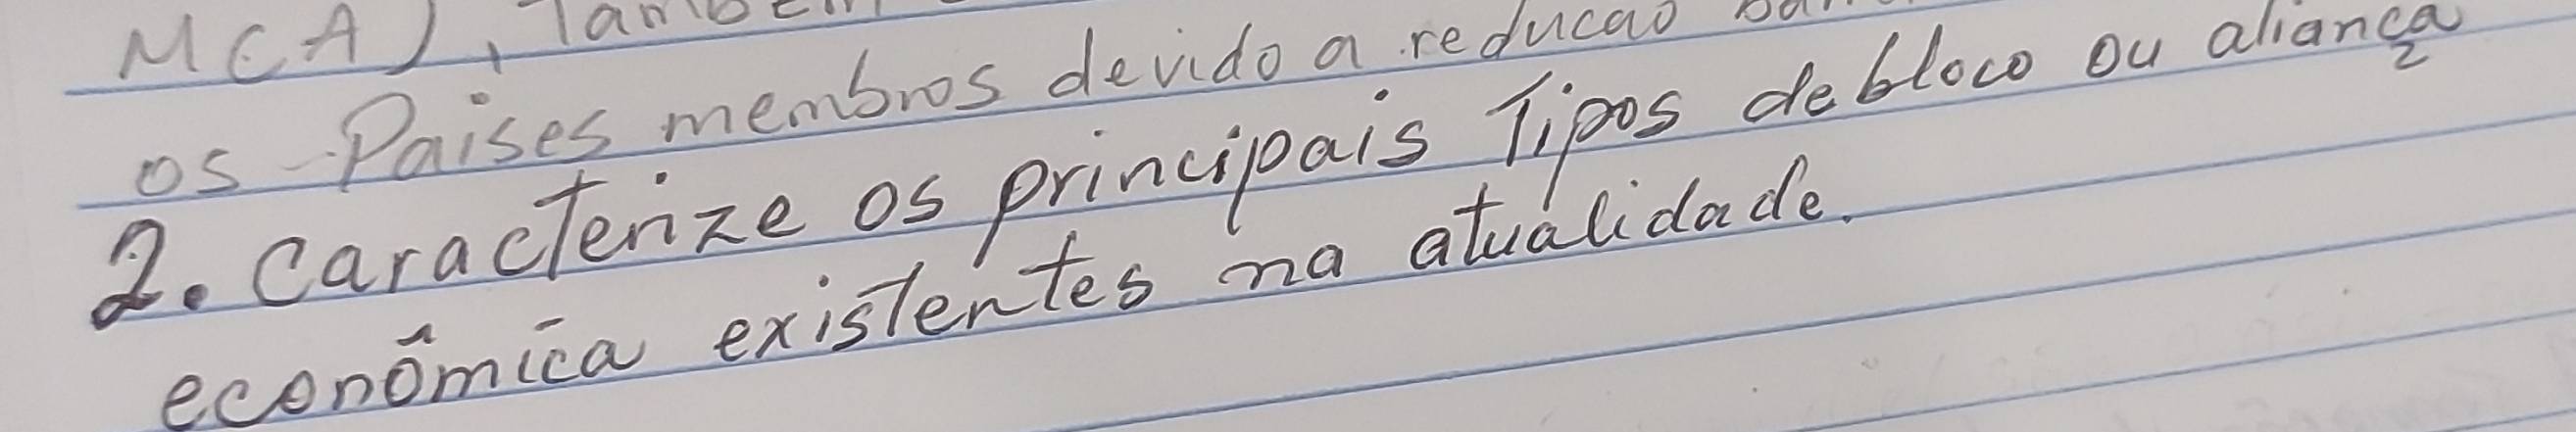 MCA), Também
os Paises membros devido a reducao
2. Caracterize os principais Tipos de bloco ou aliança
econômica existentes na atualidade.